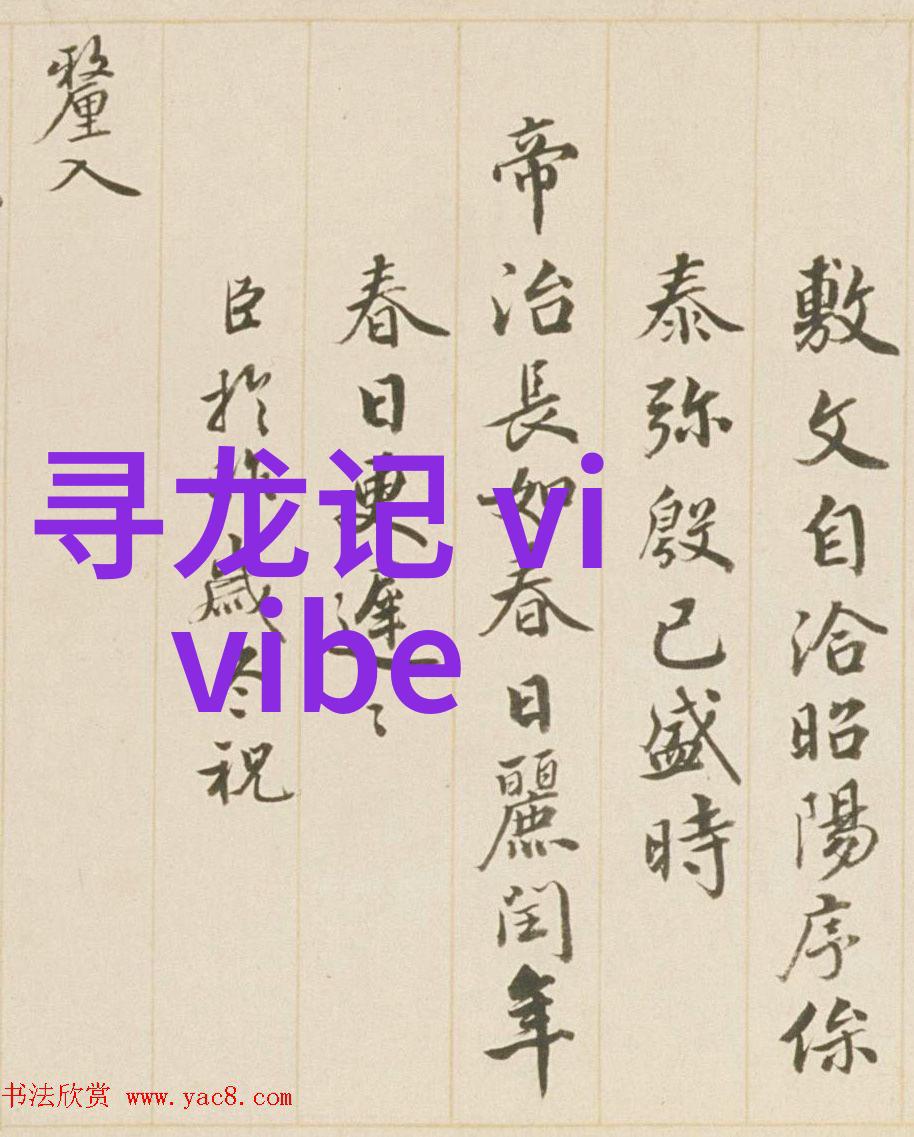 敷文自洽昭陽序
泰弥殷已盛時
帝治長如春日麗閏年
春日更遲〻
臣於歲冬祝
釐入
寻龙记 vi
vibe
书法欣赏 www.yac8.com